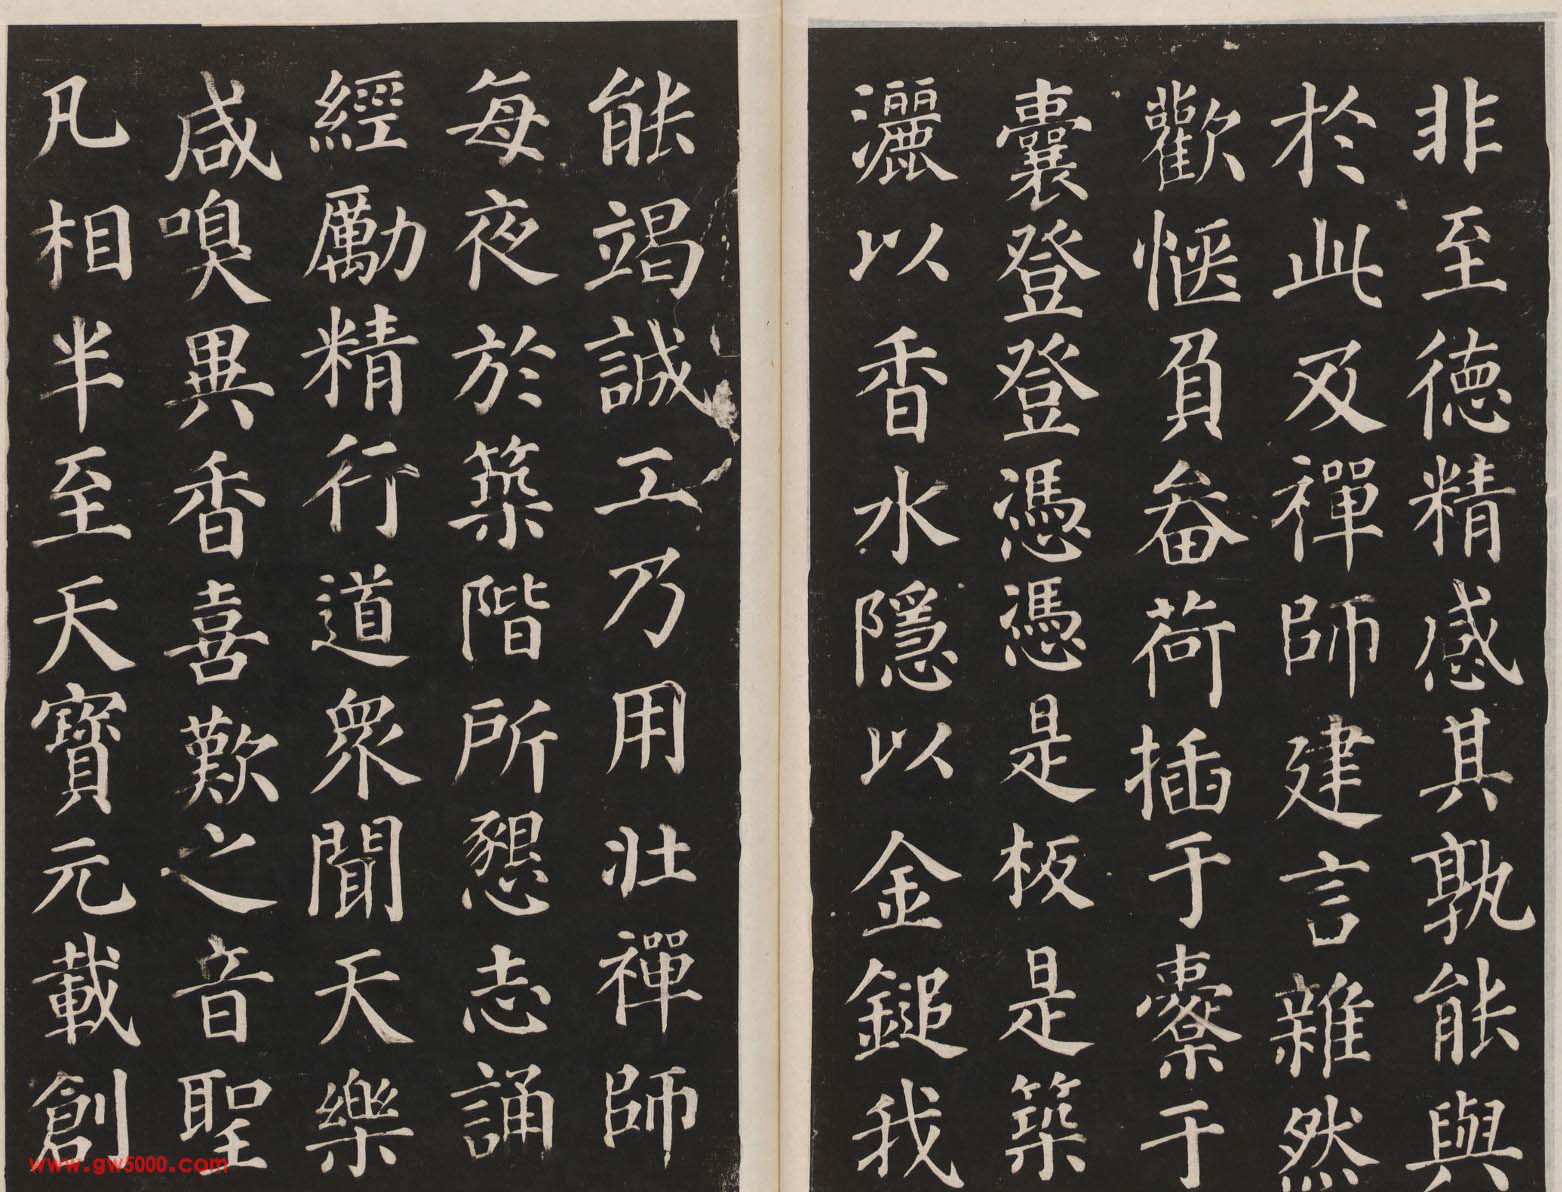 非至德精感其孰能與
於此及禪師建言雜然
歡愜負畚荷插于橐于
囊登登憑憑是板是築
灑以香水隱以金鎚我
能竭誠工乃用壯禪師
每夜於築階所懇志誦
經勵精行道眾聞天樂
咸嗅異香喜歎之音聖
凡相半至天寶元載創
www.gw5000.com